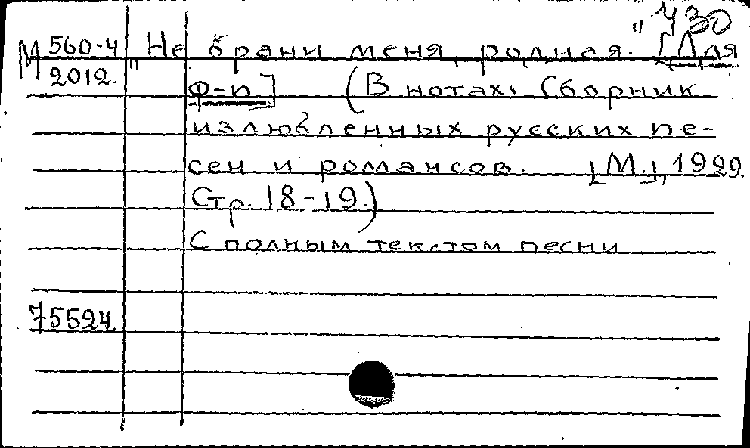 430
М 560-4 „Не брани меня, родная." [Для
2012. Ф-п.] (В нотах: Сборник
излюбленных русских пе-
сен и романсов. [М.], 1929.
Стр. 18-19.)
С полным текстом песни
75524